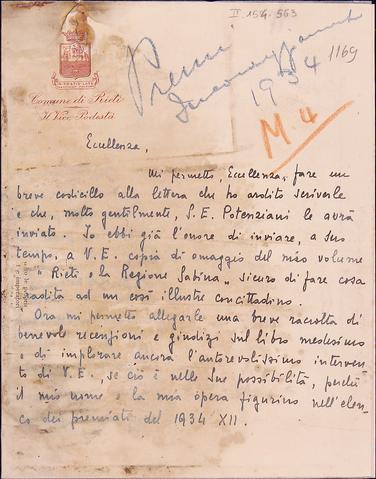 II 154.563
1169
Premi
Incoraggiamento
1934
M. 4
Comune di Rieti
Il Vice Podestà
Eccellenza,
Mi permetto, Eccellenza, fare un
breve codicillo alla lettera che ho ardito scriverle
e che, molto gentilmente, S. E. Potenziani le avrà
inviato. Io ebbi già l'onore di inviare, a suo
tempo, a V. E. copia di omaggio del mio volume
"Rieti e la Regione Sabina" sicuro di fare cosa
gradita ad un così illustre concittadino.
Ora mi permetto allegarle una breve raccolta di
benevole recensioni e giudizi sul libro medesimo
e di implorare ancora l'autorevolissimo interven-
to di V. E., se ciò è nelle Sue possibilità, perchè
il mio nome e la mia opera figurino nell'elen-
co dei premiati del 1934 XII.